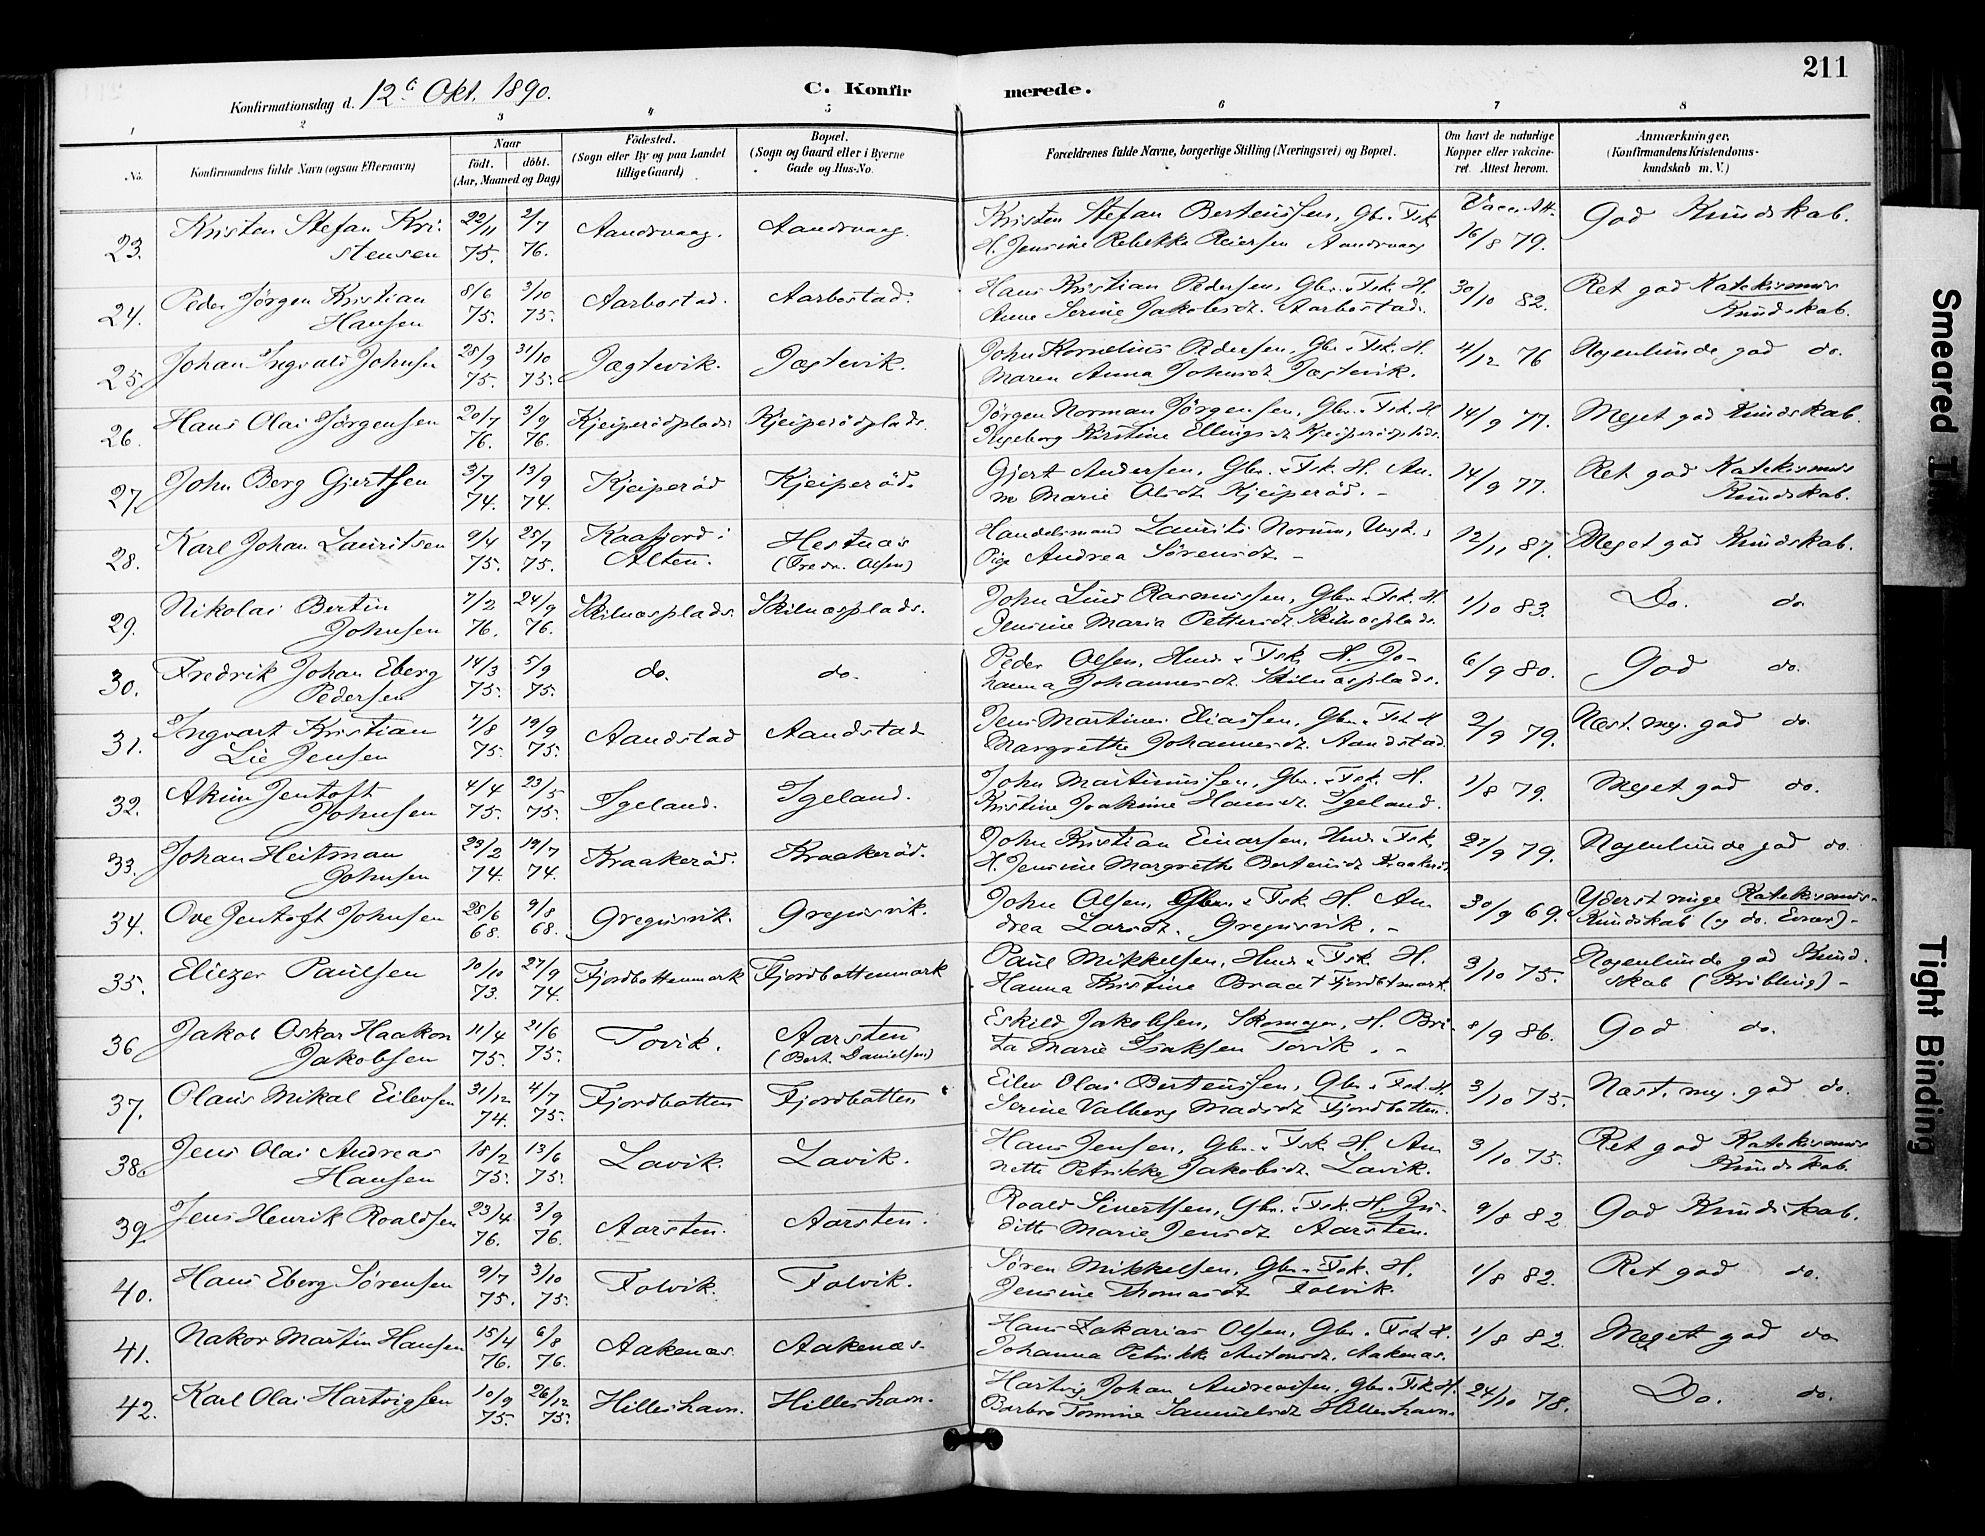 211
Konfirmationsdag d. 12te Okt. 1890. C. Konfirmerede.
1 2 3 4 5 6 7 8
No. Konfirmandens fulde Navn (ogsaa Efternavn) Naar født. døbt. (Aar, Maaned og Dag) Fødested. (Sogn eller By og paa Landet tillige Gaard) Bopæl. (Sogn og Gaard eller i Byerne Gade og Hus-No. Forældrenes fulde Navne, borgerlige Stilling (Næringsvei) og Bopæl. Om havt de naturlige Kopper eller vakcineret. Attest herom. Anmærkninger. (Konfirmandens Kristendomskundskab m. V.)
23. Kristen Stefan Kri- 22/11 2/7 Aandsvaag. Aandsvaag. Kristen Stefan Bertenssen, Gbr. & Fsk. Vacc. Att. God Kundskab.
stensen 75. 76. H. Jensine Rebekka Reiersen Aandsvaag 16/8 79.
24. Peder Jørgen Kristian 8/6 3/10 Aarbostad. Aarbostad. Hans Kristian Pedersen, Gbr. & Fsk. H. 30/10 82. Ret god Katekismus
Hansen 75. 75. Anne Serine Jakobsdt. Aarbostad. Kundskab.
25. Johan Ingvald Johnsen 28/9 31/10 Jægtevik. Jægtevik. John Kornelius Pedersen, Gbr. & Fsk. H. 4/12 76 Nogenlunde god do.
75. 75. Maren Anna Johnsdt. Jægtevik.
26. Hans Olai Jørgensen 20/7 3/9 Kjeiperødplads Kjeiperødplads. Jørgen Norman Jørgensen, Gbr. & Fsk. H. 14/9 77. Meget god Kundskab.
76. 76. Ingeborg Kirstine Ellingsdt. Kjeiperødplads.
27. John Berg Gjertsen 3/7 13/9 Kjeiperød Kjeiperød. Gjert Andersen, Gbr. & Fsk. H. An- 14/9 77. Ret god Katekismus
74. 74. ne Marie Olsdt. Kjeiperød. - Kundskab.
28. Karl Johan Lauritsen 9/4 25/7 Kaafjord i Hestnæs Handelsmand Laurits Norum, Ungk. & 12/11 87. Meget god Kundskab.
75. 75. Alten. (Fredr. Olsen) Pige Andrea Sørensdt. -
29. Nikolai Bertin 7/2 24/9 Skilnæsplads. Skilnæsplads. John Lind Rasmussen, Gbr. & Fsk. H. 1/10 83. Do. do.
Johnsen 76. 76. Jensine Maria Pettersdt. Skilnæsplads.
30. Fredrik Johan Eberg 14/3 5/9 do. do. Peder Olsen, Hmd. & Fsk. H. Jo- 6/9 80. God do.
Pedersen 75. 75. hanna Johannesdt. Skilnæsplads.
31. Ingvart Kristian 7/8 19/9 Aandstad Aandstad Jens Martines Eliassen, Gbr. & Fsk. H. 2/9 79. Næst. meg. god do.
Lie Jensen 75. 75. Margrethe Johannesdt. Aandstad.
32. Akim Jentoft 4/4 23/5 Igeland. Igeland. John Martinussen, Gbr. & Fsk. H. 1/8 79. Meget god do.
Johnsen 75. 75. Kristine Joakime Hansdt. Igeland.
33. Johan Heitman 23/2 19/7 Kraakerød. Kraakerød. John Kristian Einarsen, Hmd. & Fsk. 27/9 79. Nogenlunde god do.
Johnsen 74. 74. H. Jensine Margrethe Bertensdt. Kraakerød
34. Ove Jentoft Johnsen 28/6 9/8 Gregusvik. Gregusvik. John Olsen, Gbr. & Fsk. H. An- 30/9 69. Yderst ringe Katekismus-
68. 68. drea Larsdt. Gregusvik. - Kundskab (og do. Evner) -
35. Eliezer Paulsen 10/10 27/9 Fjordbottenmark Fjordbottenmark Paul Mikkelsen, Hmd. & Fsk. H. 3/10 75. Nogenlunde god Kund-
73. 74. Hanna Kristine Braat Fjordbtmark. skab (Krøbling) -
36 Jakob Oskar Haakon 11/4 21/6 Tovik. Aarsten Eskild Jakobsen, Skomager, H. Bri- 8/9 86. God do.
Jakobsen 75. 75. (Bert. Danielsen) ta Marie Isaksen Tovik. -
37. Olaus Mikal Eilevsen 31/12 4/7 Fjordbotten Fjordbotten Eilev Olai Bertenssen, Gbr. & Fsk. H. 3/10 75. Næst. meg. god do.
74. 75. Serine Valberg Madsdt. Fjordbotten.
38. Jens Olai Andreas 18/2 13/6 Lavik. Lavik. Hans Jensen, Gbr. & Fsk. H. An- 3/10 75. Ret god Katekismus
Hansen 75. 75. nette Petrikke Jakobsdt. Lavik. Kundskab.
39. Jens Henrik Roaldsen 23/4 3/9 Aarsten. Aarsten. Roald Sivertsen, Gbr. & Fsk. H. Ju- 9/8 82. God Kundskab.
76. 76. ditte Marie Jensdt. Aarsten.
40. Hans Eberg Sørensen 9/7 3/10 Folvik. Folvik. Søren Mikkelsen, Gbr. & Fsk. H. 1/8 82. Ret god do.
75. 75. Jensine Thomasdt. Folvik.
41. Nakor Martin Hansen 15/4 6/8 Aakenæs. Aakenæs. Hans Zakarias Olsen, Gbr. & Fsk. H. 1/8 82. Meget god do
76. 76. Johanna Petrikke Antonsdt. Aakenæs.
42. Karl Olai Hartvigsen 10/9 26/12 Hilleshavn. Hilleshavn. Hartvig Johan Andreassen, Gbr. & Fsk. H. 24/10 78. Do. do.
75. 75. Barbro Tomine Samuelsdt. Hilleshavn.
Smeared
Tight Binding